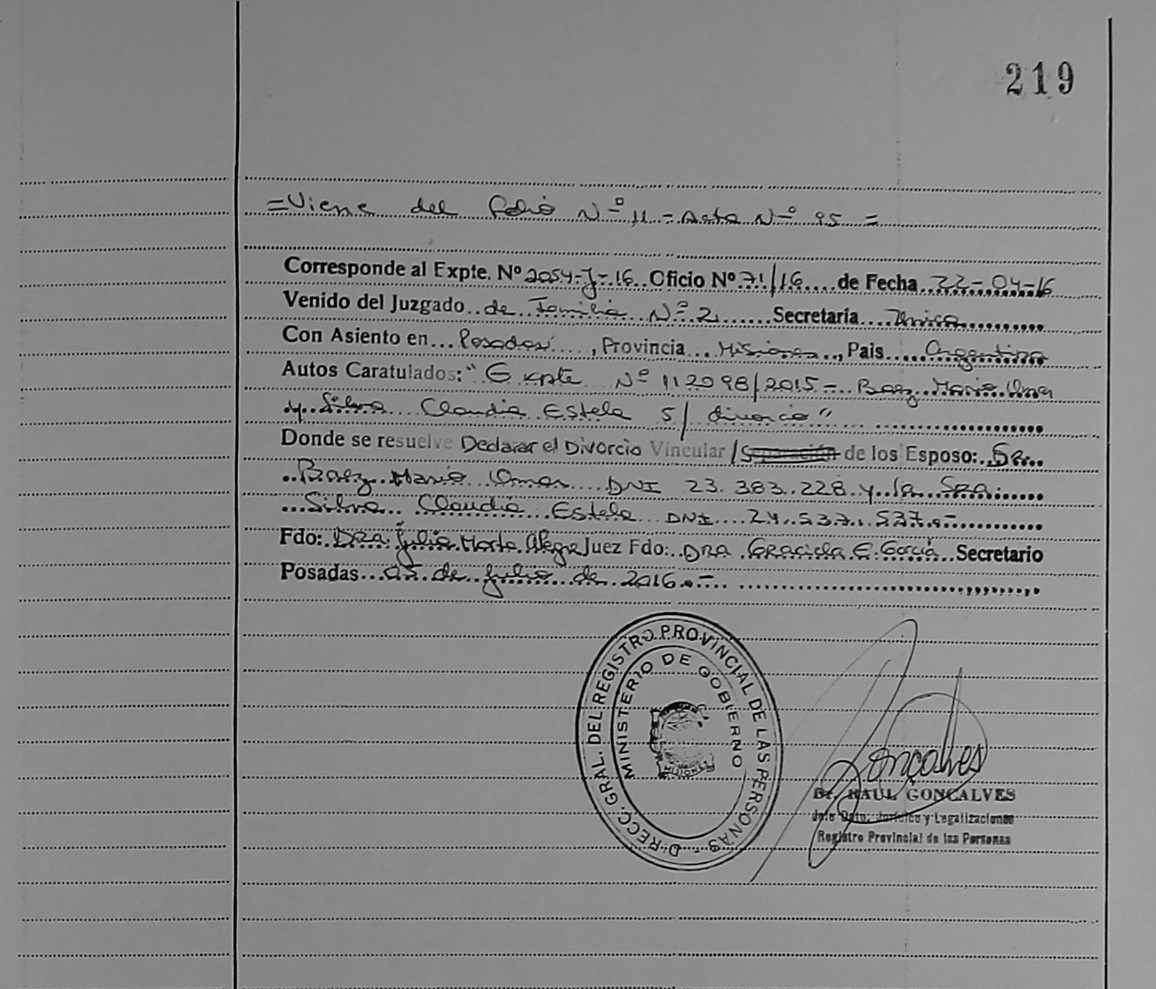 219
=Viene del folio Nº 11 = Acta Nº 95 =
Corresponde al Expte. Nº 2054-J-16. Oficio Nº 71/16 .... de Fecha 22-04-16
Venido del Juzgado de Familia Nº 2 ...... Secretaria Unica
Con Asiento en Posadas, Provincia Misiones, Pais Argentina
Autos Caratulados: "Expte Nº 112098/2015 - Baez Mario Omar
y Silva Claudia Estela S/ divorcio"
Donde se resuelve Declarar el Divorcio Vincular /Separación de los Esposo: Sr.
Baez Mario Omar DNI 23.383.228 y la Sra.
Silva Claudia Estela DNI 24.537.537.-
Fdo: Dra Julia Marta Alegre Juez Fdo: DRA. Graciela E. García Secretario
Posadas 05 de julio de 2016.-
D-RECC. GRAL. DEL REGISTRO PROVINCIAL DE LAS PERSONAS-
MINISTERIO DE GOBIERNO
MISIONES
Gonçalves
Dr. RAUL GONCALVES
Jefe Dpto. Jurídico y Legalizaciones
Registro Provincial de las Personas